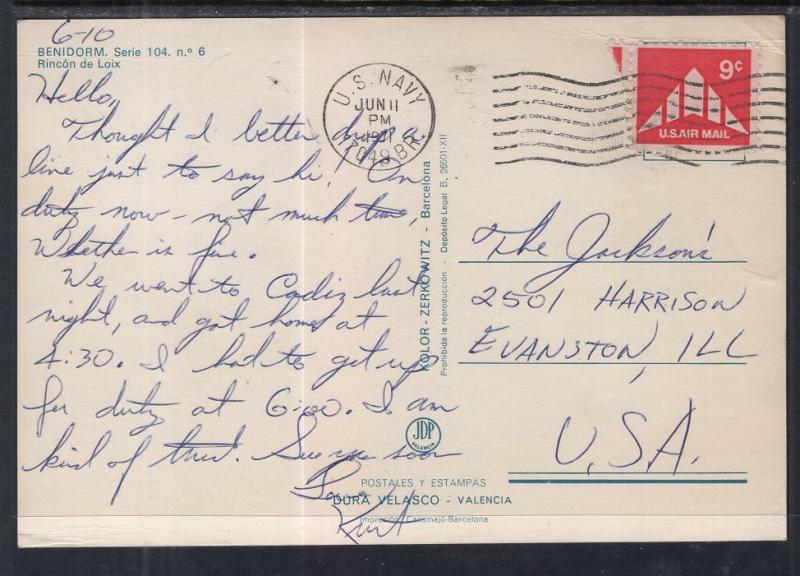 6-10
BENIDORM. Serie 104. n.º 6
Rincón de Loix
Hello,
Thought I better drop a
line just to say hi. On
duty now - not much time,
Whether is fine.
We went to Cadiz last
night, and got home at
4:30. I had to get up
for duty at 6:00. I am
kind of tired. See you soon
Kurt
U.S. NAVY
JUN 11
PM
17048 BR.
9c
U.S. AIR MAIL
KOLOR-ZERKOWITZ - Barcelona
Prohibida la reproducción - Depósito Legal B. 26501-XII
The Jackson's
2501 HARRISON
EVANSTON, ILL
U.S.A.
JDP
VALENCIA
POSTALES Y ESTAMPAS
DURA VELASCO - VALENCIA
Impresión: Casamajó-Barcelona